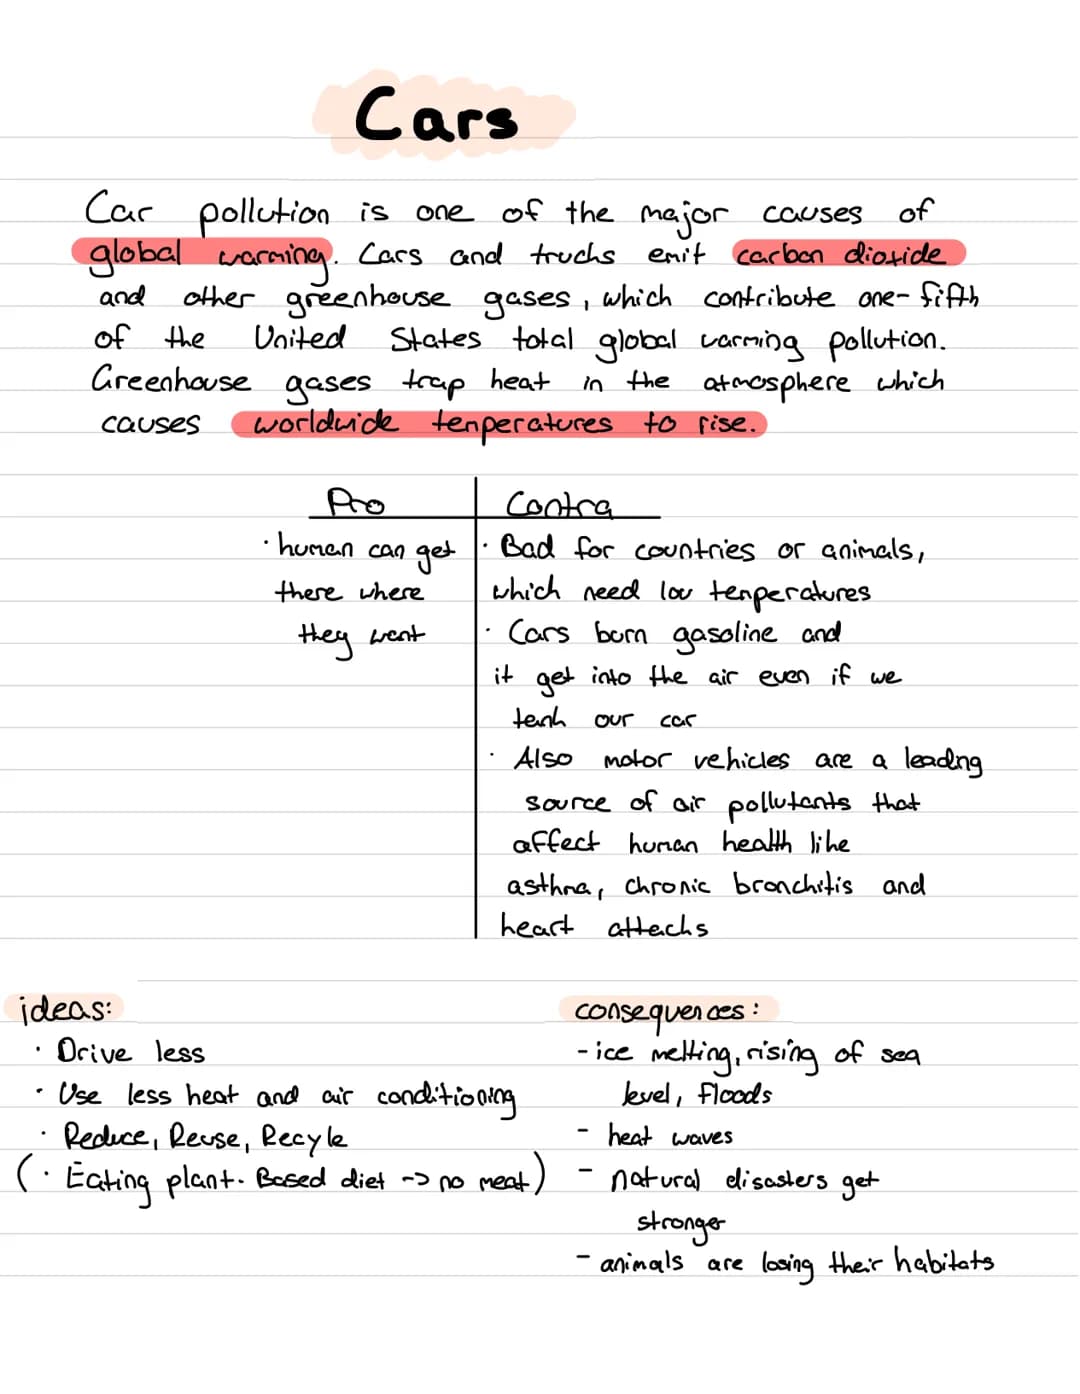 Cars
Car pollution is one of the major causes of
global warming. Cars and trucks emit carbon dioxide
and other greenhouse gases, which contribute one-fifth
of the United States total global warming pollution.
Greenhouse gases trap heat in the atmosphere which
causes worldwide temperatures to rise.
Pro
· human can get
there where
they want
Contra
· Bad for countries or animals,
which need low temperatures
· Cars burn gasoline and
it get into the air even if we
tank our car
· Also motor vehicles are a leading
source of air pollutants that
affect human health like
asthma, chronic bronchitis and
heart attacks
ideas:
· Drive less
· Use less heat and air conditioning
· Reduce, Reuse, Recyle
(· Eating plant-Based diet -> no meat)
consequences:
- ice melting, rising of sea
level, floods
- heat waves
- natural disasters get
stronger
- animals are losing their habitats